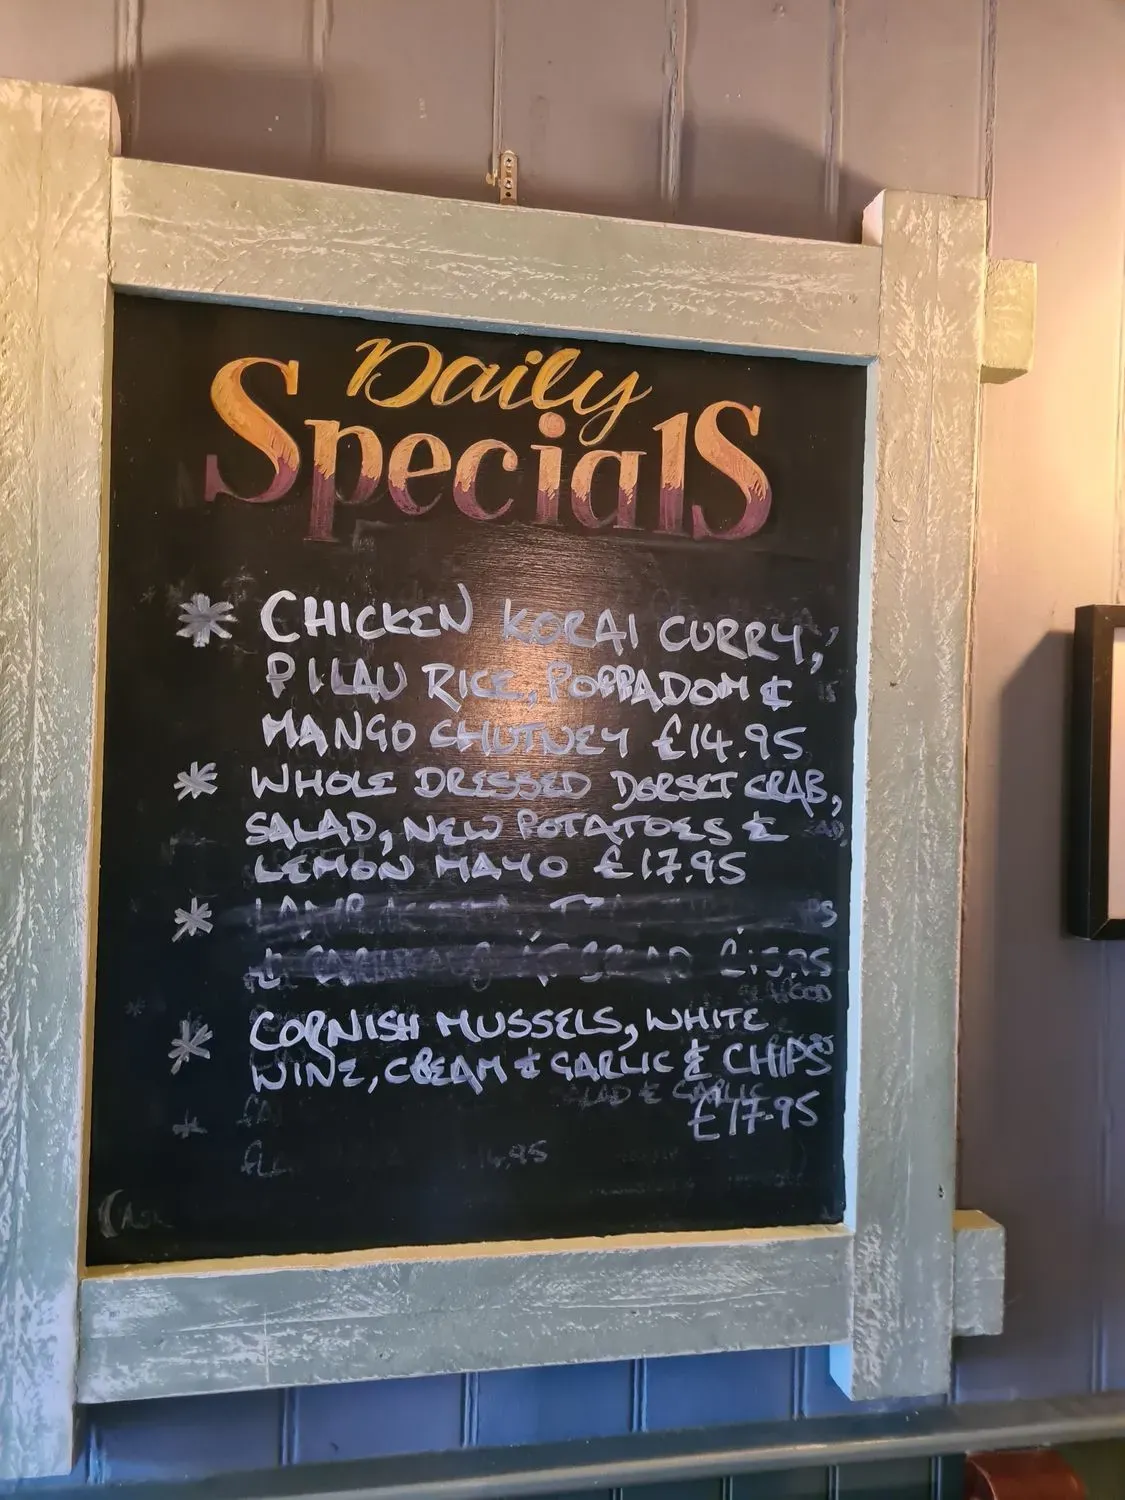 Daily
Specials
* CHICKEN KORAI CURRY,
PILAU RICE, POPPADOM &
MANGO CHUTNEY £14.95
* WHOLE DRESSED DORSET CRAB,
SALAD, NEW POTATOES &
LEMON MAYO £17.95
*
* CORNISH MUSSELS, WHITE
WINE, CREAM & GARLIC & CHIPS
£17.95